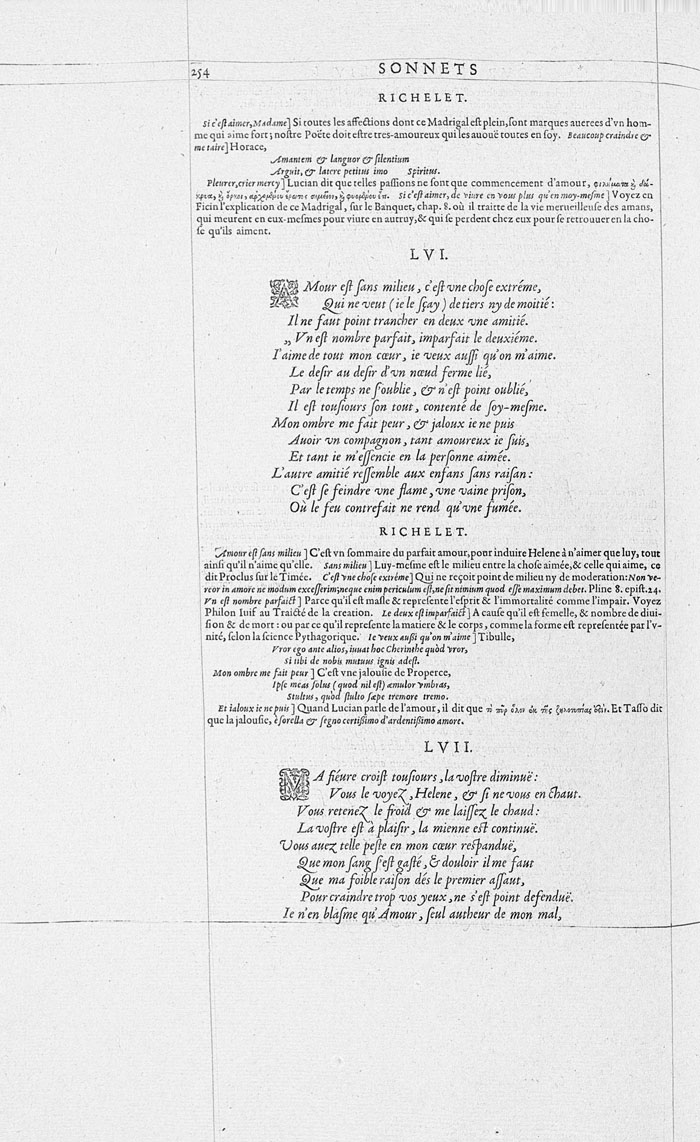 254 SONNETS
RICHELET.
Si c'est aimer, Madame] Si toutes les affections dont ce Madrigal est plein, sont marques auerees d'vn hom-
me qui aime fort; nostre Poëte doit estre tres-amoureux qui les auouë toutes en soy. Beaucoup craindre &
me taire] Horace,
Amantem & languor & silentium
Arguit, & latere petitus imo Spiritus.
Pleurer, crier mercy] Lucian dit que telles passions ne sont que commencement d'amour,
Si c'est aimer, de viure en vous plus qu'en moy-mesme] Voyez en
Ficin l'explication de ce Madrigal, sur le Banquet, chap. 8. où il traitte de la vie merueilleuse des amans,
qui meurent en eux-mesmes pour viure en autruy, & qui se perdent chez eux pour se retrouuer en la cho-
se qu'ils aiment.
LVI.
AMour est sans milieu, c'est vne chose extréme,
Qui ne veut (ie le sçay) de tiers ny de moitié:
Il ne faut point trancher en deux vne amitié.
„ Vn est nombre parfait, imparfait le deuxiéme.
I'aime de tout mon cœur, ie veux aussi qu'on m'aime.
Le desir au desir d'vn nœud ferme lié,
Par le temps ne s'oublie, & n'est point oublié,
Il est tousiours son tout, contenté de soy-mesme.
Mon ombre me fait peur, & jaloux ie ne puis
Auoir vn compagnon, tant amoureux ie suis,
Et tant ie m'essencie en la personne aimée.
L'autre amitié ressemble aux enfans sans raison:
C'est se feindre vne flame, vne vaine prison,
Où le feu contrefait ne rend qu'vne fumée.
RICHELET.
Amour est sans milieu] C'est vn sommaire du parfait amour, pour induire Helene à n'aimer que luy, tout
ainsi qu'il n'aime qu'elle. Sans milieu] Luy-mesme est le milieu entre la chose aimée, & celle qui aime, ce
dit Proclus sur le Timée. C'est vne chose extréme] Qui ne reçoit point de milieu ny de moderation: Non ve-
reor in amore ne modum excesserim; neque enim periculum est, ne sit nimium quod esse maximum debet. Pline 8. epist. 24.
Vn est nombre parfaict] Parce qu'il est masle & represente l'esprit & l'immortalité comme l'impair. Voyez
Philon Iuif au Traicté de la creation. Le deux est imparfaict] A cause qu'il est femelle, & nombre de diui-
sion & de mort: ou par ce qu'il represente la matiere & le corps, comme la forme est representée par l'v-
nité, selon la science Pythagorique. Ie veux aussi qu'on m'aime] Tibulle,
Vror ego ante alios, iuuat hoc Cherinthe quòd vror,
Si tibi de nobis mutuus ignis adest.
Mon ombre me fait peur] C'est vne jalousie de Properce,
Ipse meas solus (quod nil est) æmulor vmbras,
Stultus, quòd stulto sæpe tremore tremo.
Et ialoux ie ne puis] Quand Lucian parle de l'amour, il dit que τὸ πῦρ ὅλον ἐκ τῆς ζηλοτυπίας ἐστίν. Et Tasso dit
que la jalousie, è sorella & segno certissimo d'ardentissimo amore.
LVII.
MA fiéure croist tousiours, la vostre diminuë:
Vous le voyez, Helene, & si ne vous en chaut.
Vous retenez le froid & me laissez le chaud:
La vostre est à plaisir, la mienne est continuë.
Vous auez telle peste en mon cœur respanduë,
Que mon sang s'est gasté, & douloir il me faut
Que ma foible raison dés le premier assaut,
Pour craindre trop vos yeux, ne s'est point defenduë.
Ie n'en blasme qu'Amour, seul autheur de mon mal,